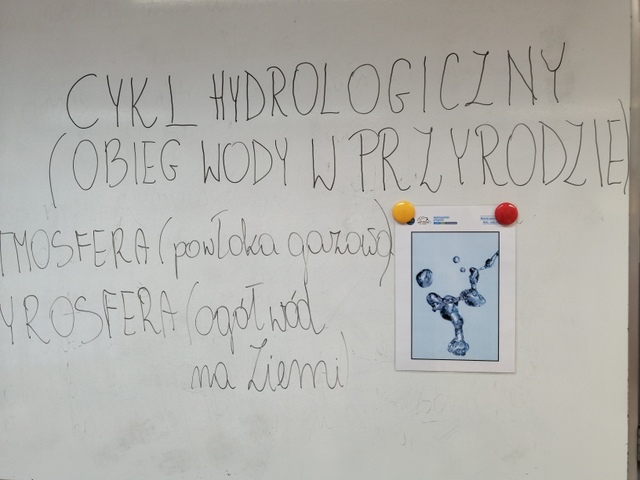 CYKL HYDROLOGICZNY
(OBIEG WODY W PRZYRODZIE)
TMOSFERA (powłoka gazowa)
YROSFERA (ogół wód
na Ziemi)